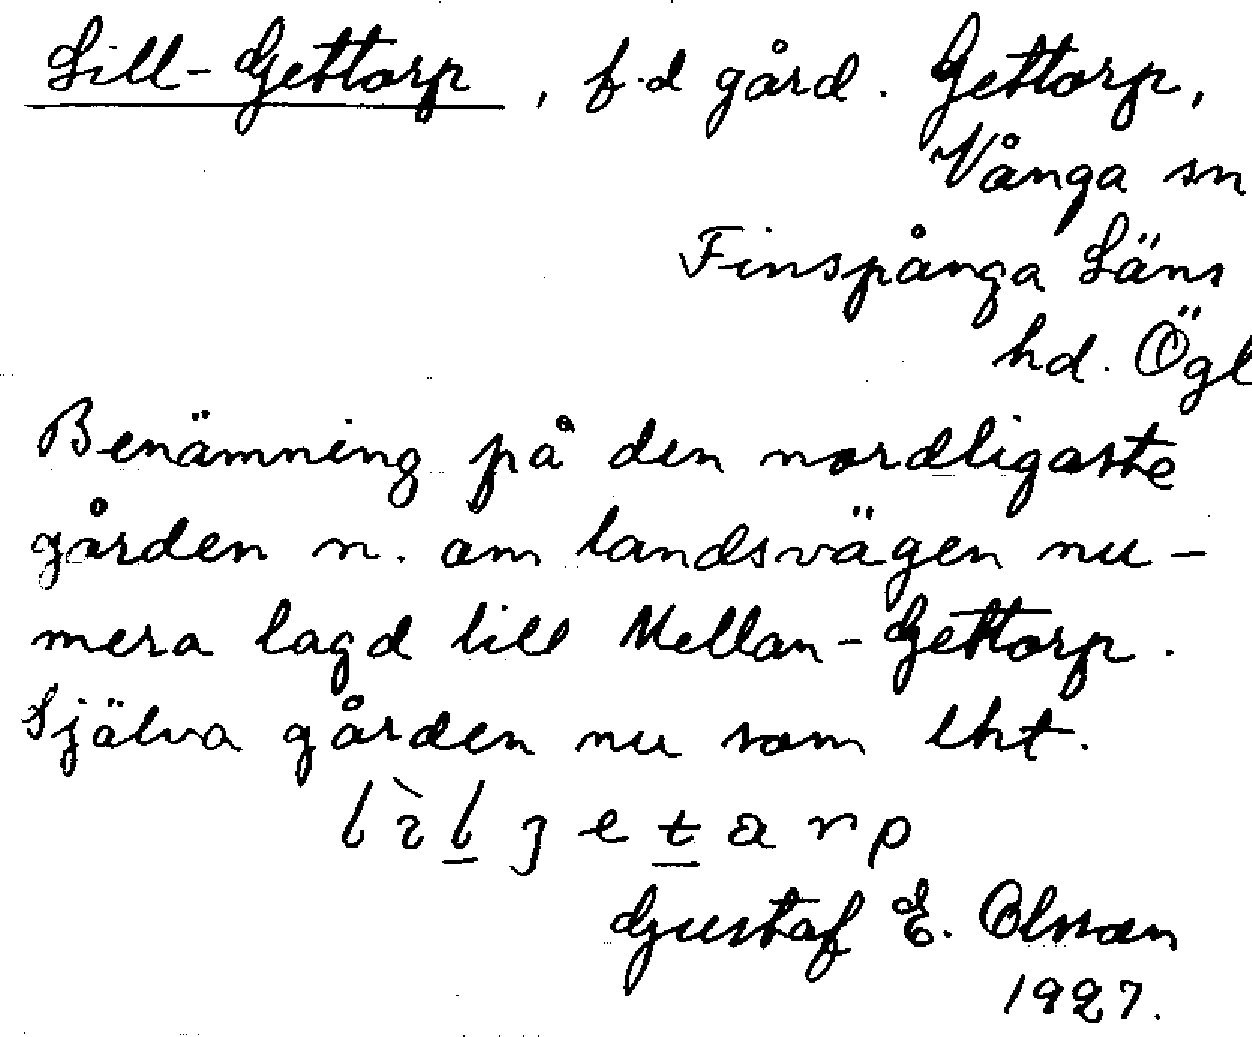 Lill-Gettorp, f.d gård. Gettorp,
Vånga sn
Finspånga Läns
hd. Ögl
Benämning på den nordligaste
gården n. om landsvägen nu-
mera lagd till Mellan-Gettorp.
Själva gården nu som lht.
Gustaf E. Olsson
1927.